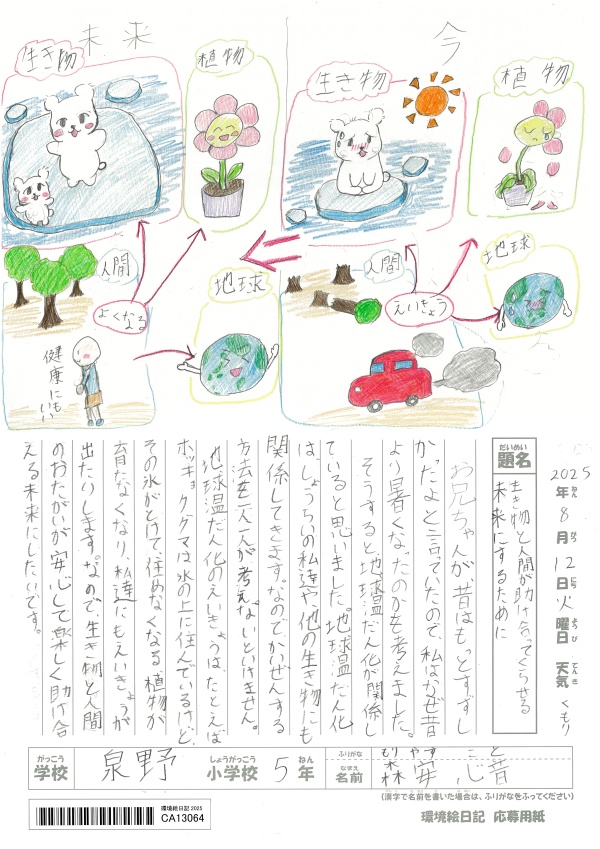 今
生き物
植物
人間
えいきょう
地球
未来
生き物
植物
人間
よくなる
健康にもいい
地球
2025年8月12日火曜日 天気 くもり
ねん がつ にち ようび てんき
だいめい
題名
生き物と人間が助け合ってくらせる
未来にするために
お兄ちゃんが、昔はもっとすずし
かったよと言っていたので、私はなぜ昔
より暑くなったのかを考えました。
そうすると、地球温だん化が関係し
ていると思いました。地球温だん化
はしょうらいの私達や他の生き物にも
関係してきます。なのでかいぜんする
方法を一人一人が考えないといけません。
地球温だん化のえいきょうは、たとえば
ホッキョクグマは氷の上に住んでいるけど、
その氷がとけて、住めなくなる、植物が
育たなくなり、私達にもえいきょうが
出たりします。なので生き物と人間
のおたがいが安心して楽しく助け合
える未来にしたいです。
がっこう しょうがっこう ねん
学校 泉野 小学校 5年
ふりがな もりやす こと
なまえ
名前 森安 心音
(漢字で名前を書いた場合は、ふりがなをふってください)
環境絵日記 2025
CA13064
環境絵日記 応募用紙